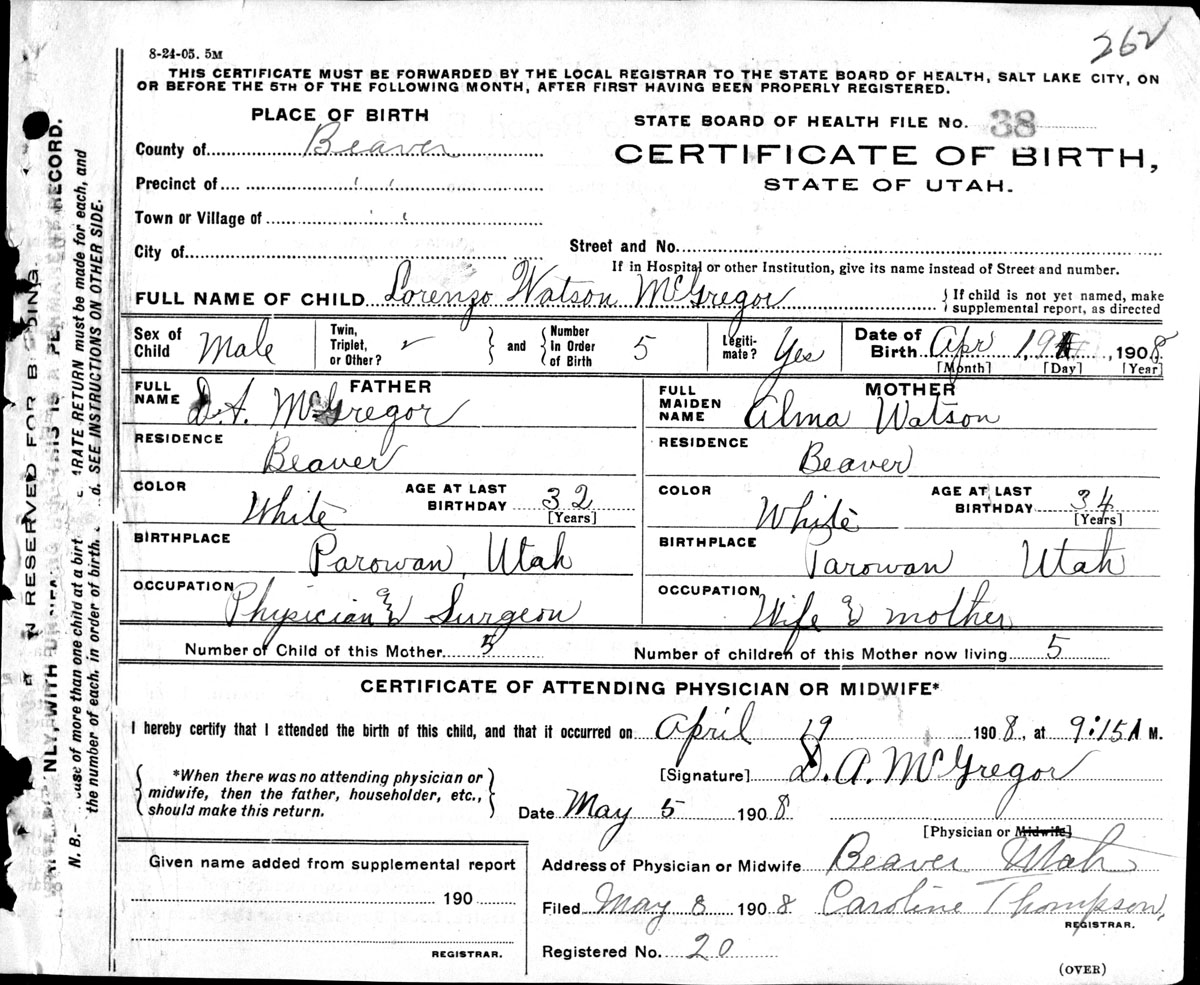 262
8-24-05. 5M
THIS CERTIFICATE MUST BE FORWARDED BY THE LOCAL REGISTRAR TO THE STATE BOARD OF HEALTH, SALT LAKE CITY, ON
OR BEFORE THE 5TH OF THE FOLLOWING MONTH, AFTER FIRST HAVING BEEN PROPERLY REGISTERED.
PLACE OF BIRTH
STATE BOARD OF HEALTH FILE No. 38
County of Beaver
CERTIFICATE OF BIRTH,
STATE OF UTAH.
Precinct of " "
Town or Village of " "
City of
Street and No.
If in Hospital or other Institution, give its name instead of Street and number.
FULL NAME OF CHILD Lorenzo Watson McGregor { If child is not yet named, make supplemental report, as directed
Sex of Child Male Twin, Triplet, or Other? } and { Number In Order of Birth 5 Legiti-mate? Yes Date of Birth Apr 19, 1908
[Month] [Day] [Year]
FATHER
FULL NAME D. A. McGregor
MOTHER
FULL MAIDEN NAME Alma Watson
RESIDENCE Beaver
RESIDENCE Beaver
COLOR White AGE AT LAST BIRTHDAY 32 [Years]
COLOR White AGE AT LAST BIRTHDAY 34 [Years]
BIRTHPLACE Parowan, Utah
BIRTHPLACE Parowan Utah
OCCUPATION Physician & Surgeon
OCCUPATION Wife & mother
Number of Child of this Mother 5
Number of children of this Mother now living 5
CERTIFICATE OF ATTENDING PHYSICIAN OR MIDWIFE*
I hereby certify that I attended the birth of this child, and that it occurred on April 19 1908, at 9:15 A M.
{ *When there was no attending physician or midwife, then the father, householder, etc., should make this return. }
[Signature] D. A. McGregor
Date May 5 1908
[Physician or Midwife]
Address of Physician or Midwife Beaver Utah
Filed May 8 1908 Caroline Thompson,
REGISTRAR.
Registered No. 20
(OVER)
Given name added from supplemental report
190
REGISTRAR.
RESERVED FOR
THIS IS A PERMANENT RECORD.
N. B.— more than one child at a birt RATE RETURN must be made for each, and
the number of each, in order of birth. SEE INSTRUCTIONS ON OTHER SIDE.